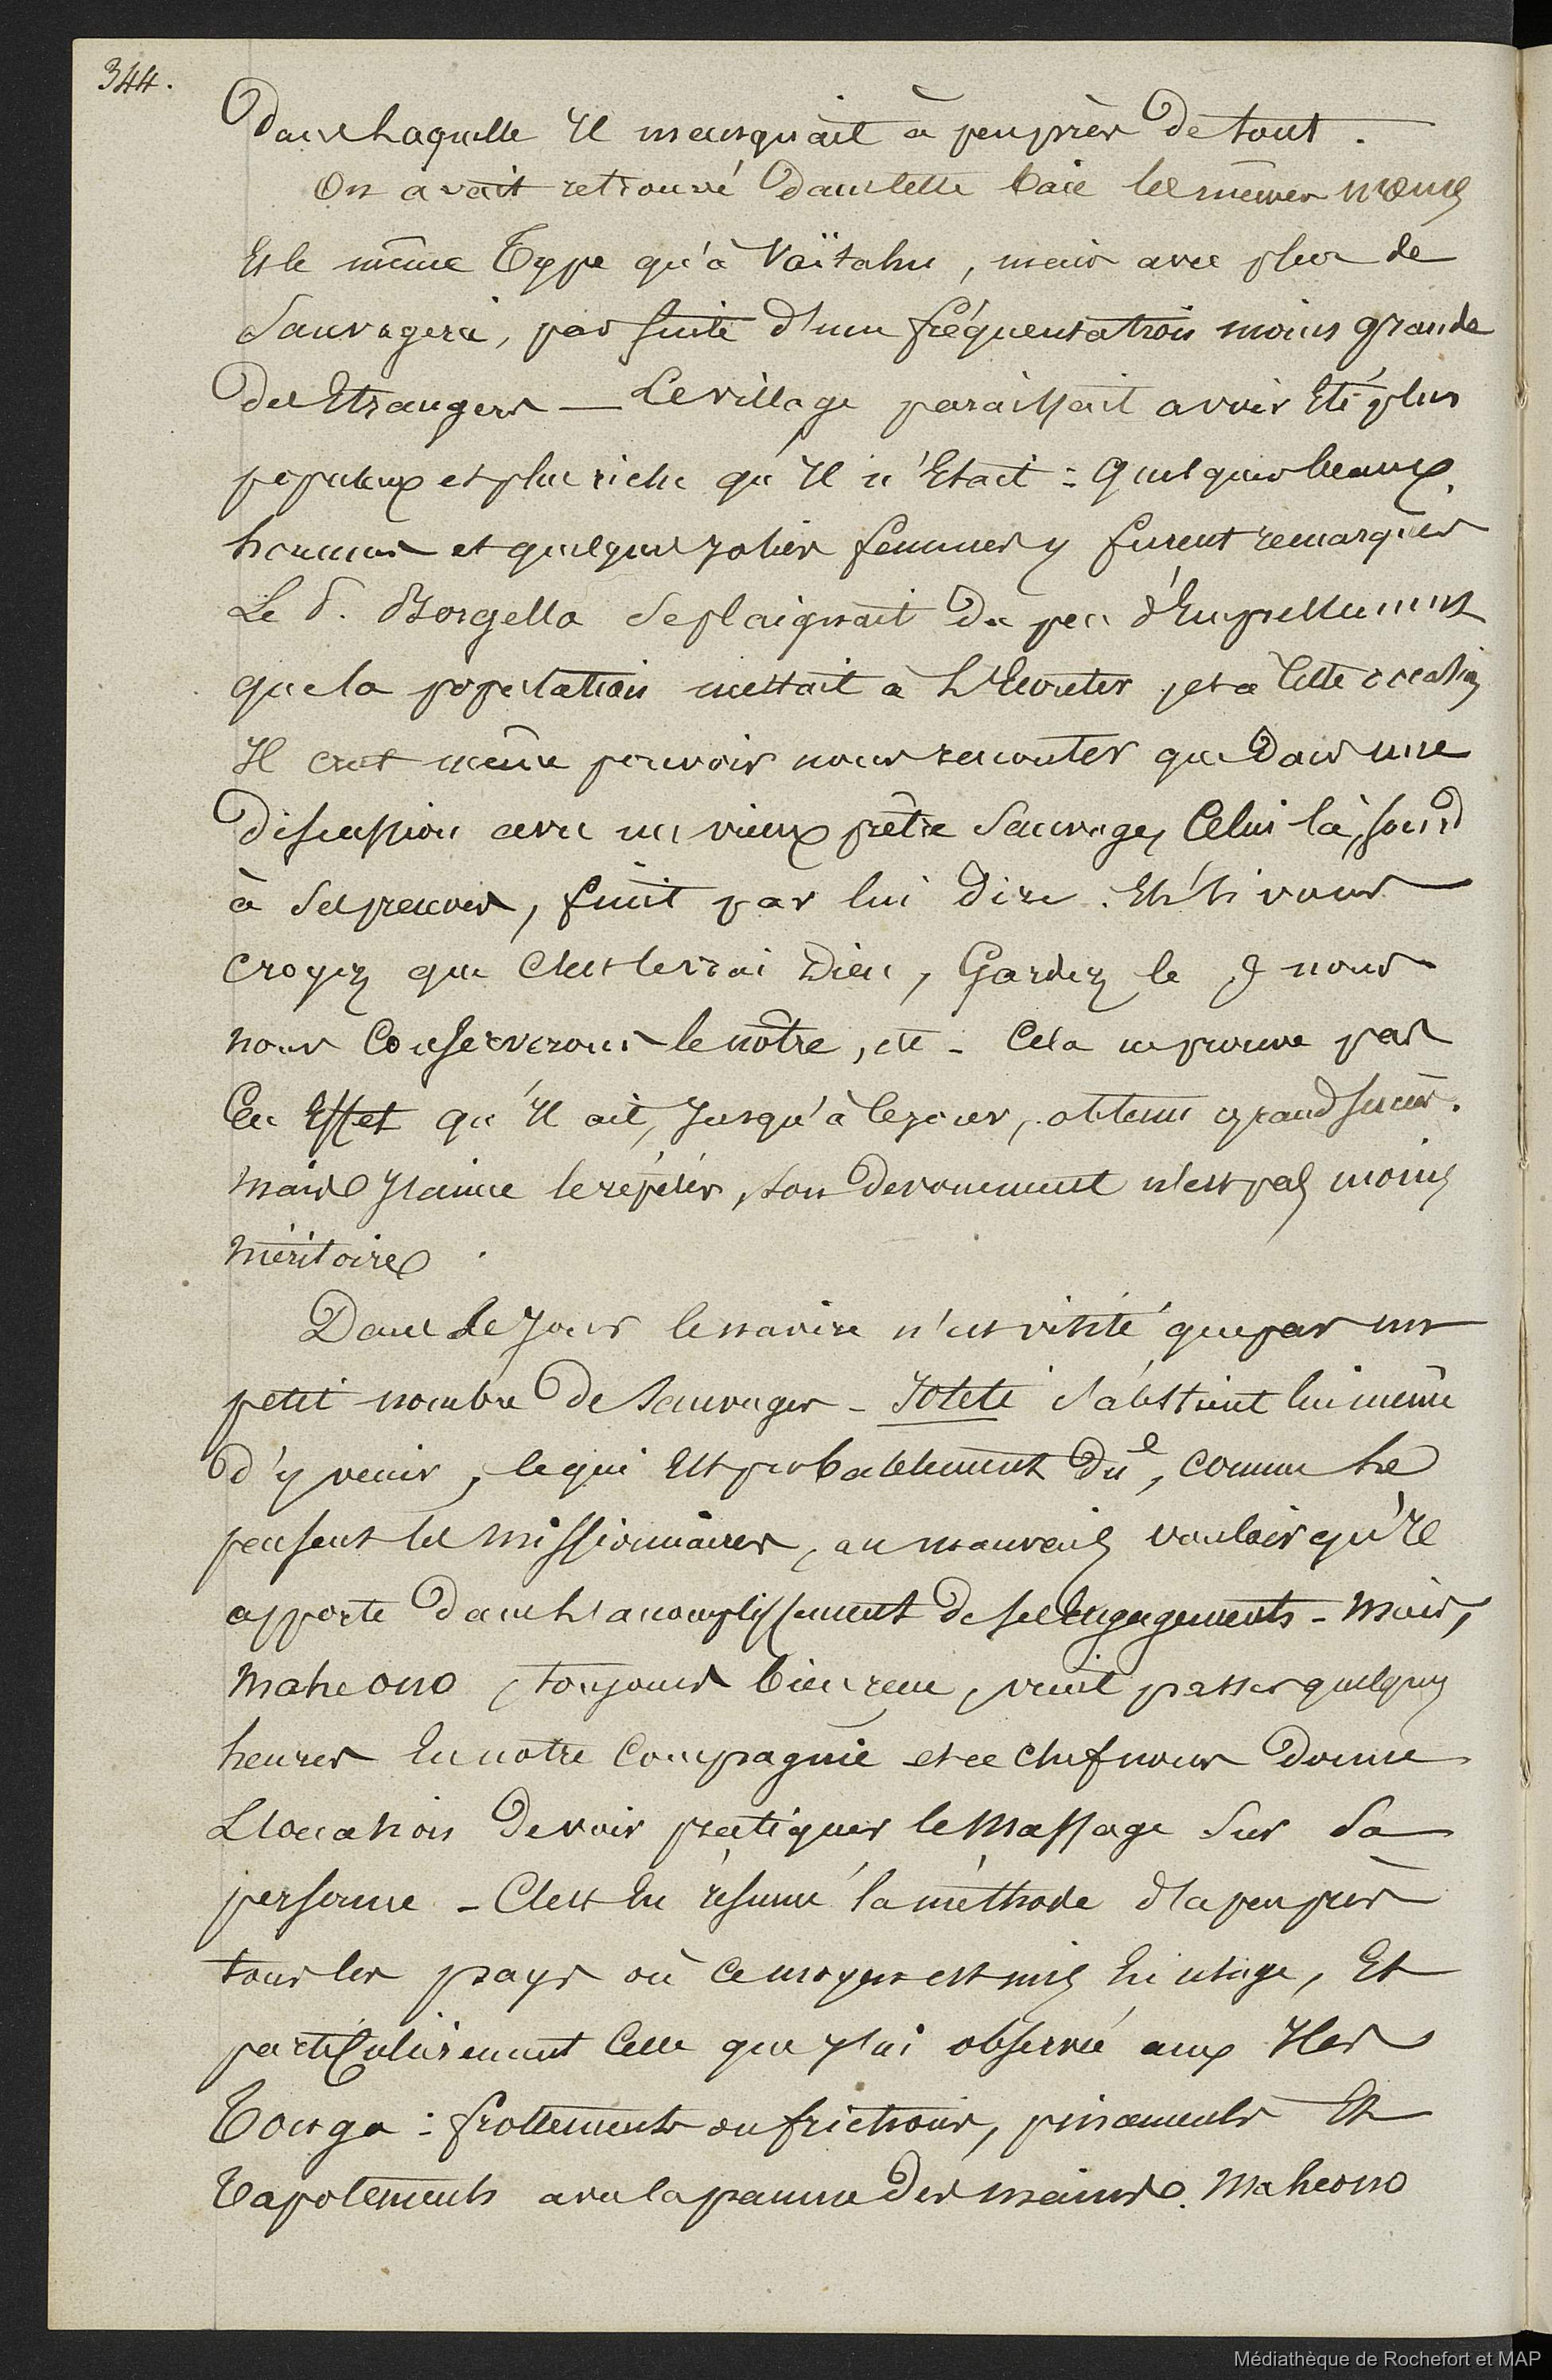 344.
Dans laquelle Il manquait à peu près de tout.
On avait retrouvé dans cette baie les mêmes mœurs
Et le même Type qu'à Vaïtahu, mais avec plus de
Sauvagerie, par suite d'une fréquentation moins grande
des Etrangers — Le village paraissait avoir Eté plus
populeux et plus riche qu'Il n'Etait : quelques beaux
hommes et quelques jolies femmes y furent remarqués
Le P. Borgella se plaignait du peu d'Empressement
que la population mettait à L'Ecouter, et à Cette occasion
Il crut même pouvoir nous raconter que dans une
discussion avec un vieux prêtre Sauvage, Celui là, sourd
à ses preuves, finit par lui dire. Eh! si vous
croyez que C'est le vrai Dieu, Gardez le & nous
nous Conserverons le nôtre, etc - Cela ne prouve pas
En Effet qu'Il ait, Jusqu'à ce jour, obtenu grand succès.
Mais J'aime le répéter, son devouement n'est pas moins
méritoire.
Dans le Jour le navire n'est visité que par un
petit nombre de Sauvages - Iotété s'abstient lui même
d'y venir, ce qui Est probablement du, comme le
pensent les missionnaires, au mauvais vouloir qu'Il
apporte dans L'accomplissement de ses Engagements - Mais,
Maheono, toujours bien reçu, vient passer quelques
heures En notre Compagnie et ce chef nous donne
L'occasion de voir pratiquer le Massage Sur Sa
personne - C'est En résumé la méthode d'à peu près
tous les pays où ce moyen est mis En usage, Et
particulièrement Celle que J'ai observée aux Iles
Tonga : frottements ou frictions, pincements Et
Tapotements avec la paume des mains. Maheono
Médiathèque de Rochefort et MAP